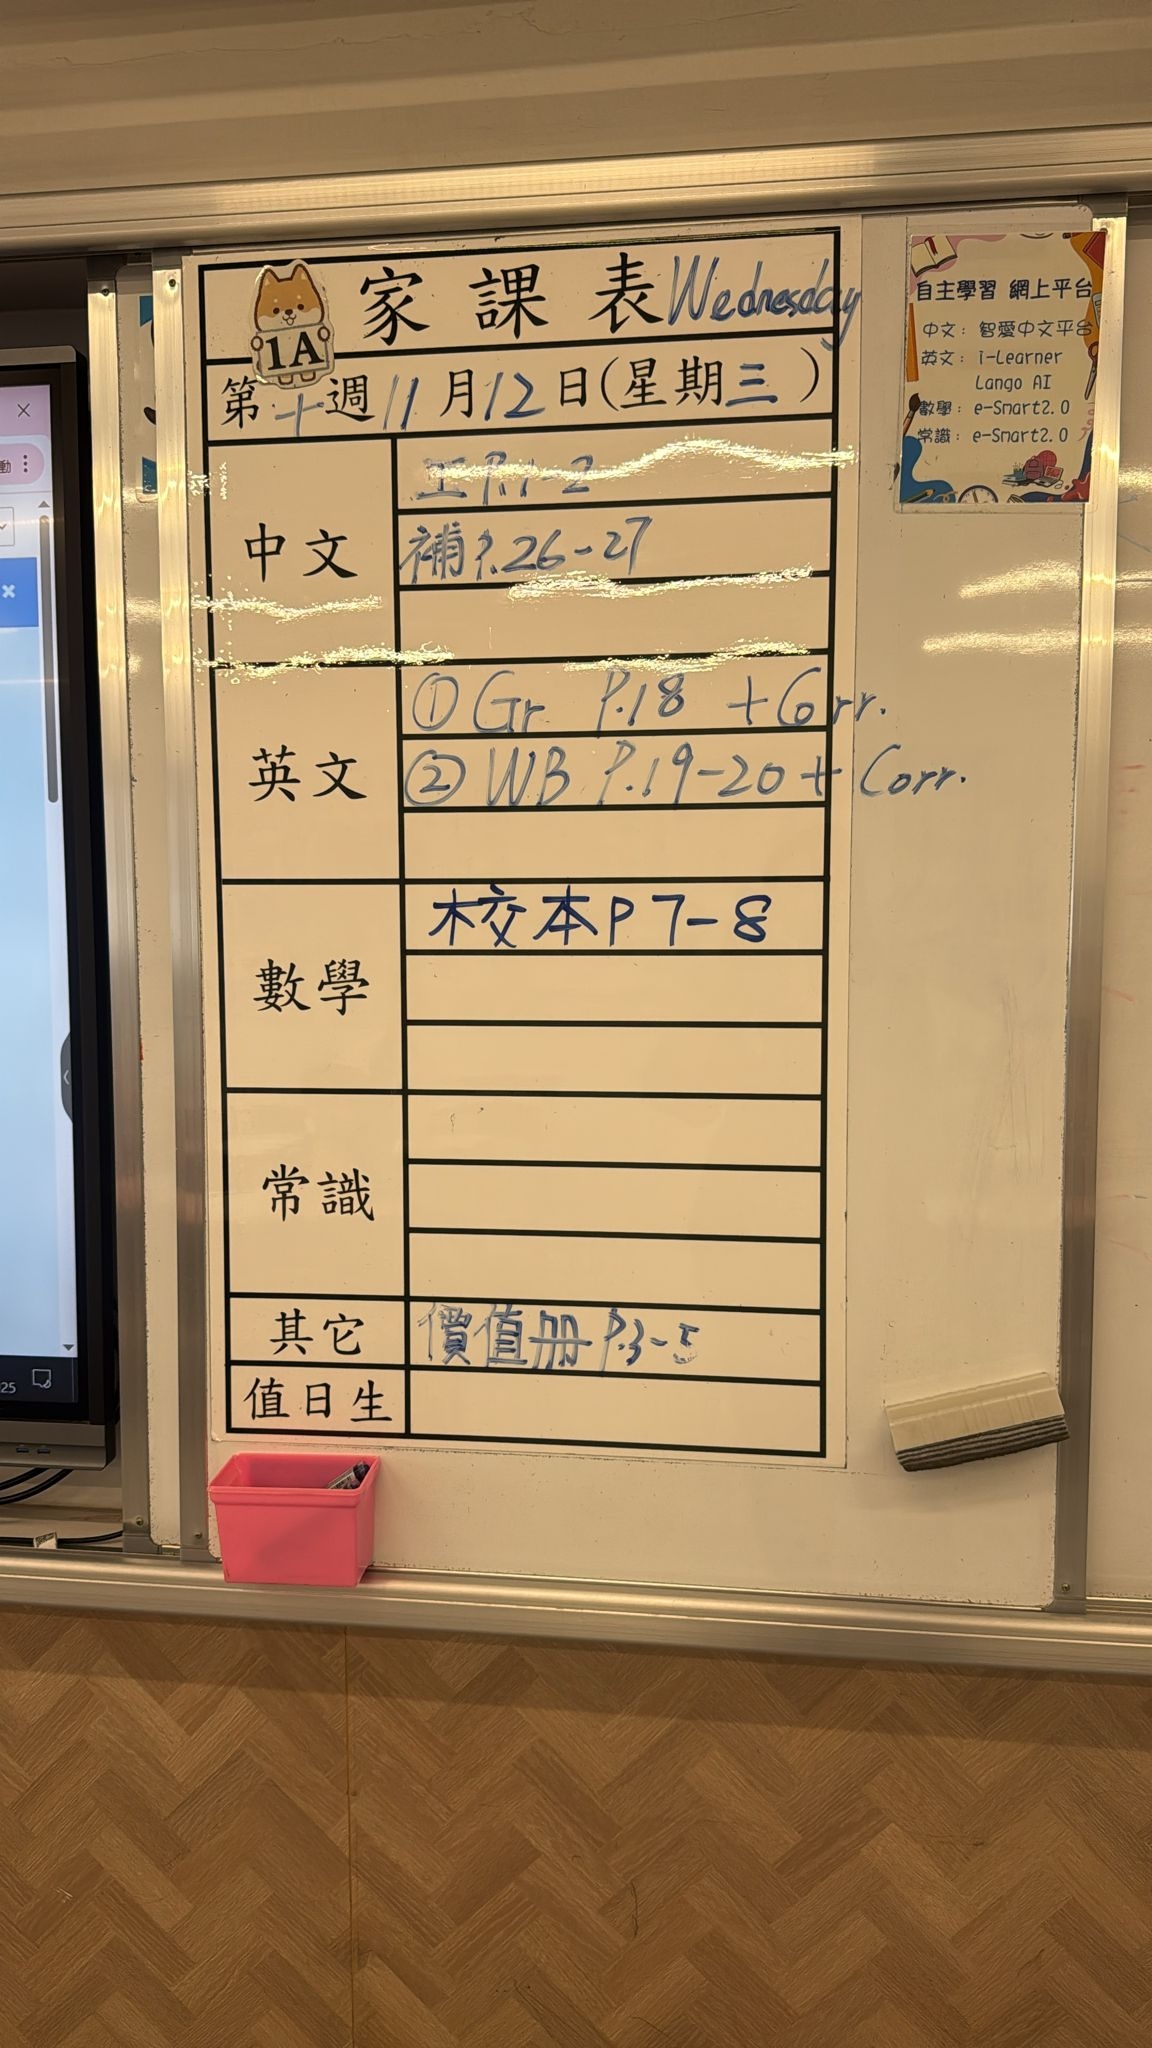 家課表 Wednesday
1A
第十週 11月12日(星期三)
中文
P.1-2
補 P.26-27
英文
① Gr P.18 + Corr.
② WB P.19-20 + Corr.
數學
校本 P7-8
常識
其它
價值冊 P.3-5
值日生
自主學習 網上平台
中文: 智愛中文平台
英文: i-Learner
Lango AI
數學: e-Smart2.0
常識: e-Smart2.0
動
25